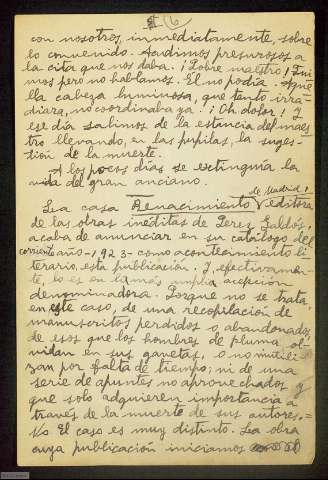 (6)
con nosotros, inmediatamente, sobre
lo convenido. Acudimos presurosos a
la cita que nos daba. ¡Pobre maestro! Fui
mos pero no hablamos. El no podía. Aque
lla cabeza luminosa, que tanto irra-
diara, no coordinaba ya. ¡Oh, dolor! Y
ese día salimos de la estancia del maes
tro llevando, en las pupilas, la suges-
tión de la muerte.
A los pocos días se extinguía la
vida del gran anciano.
de Madrid,
La casa Renacimiento editora
de las obras inéditas de Perez Galdós,
acaba de anunciar en su catálogo del
corriente año -1923- como acontecimiento li
terario, esta publicación. Y, efectivamen-
te, lo es en la más amplia acepción
denominadora. Porque no se trata,
en este caso, de una recopilación de
manuscritos perdidos o abandonados
de esos que los hombres de pluma ol-
vidan en sus gavetas, o no utili-
zan por falta de tiempo; ni de una
serie de apuntes no aprovechados y
que solo adquieren importancia a
través de la muerte de sus autores.=
No. El caso es muy distinto. La obra
cuya publicación iniciamos